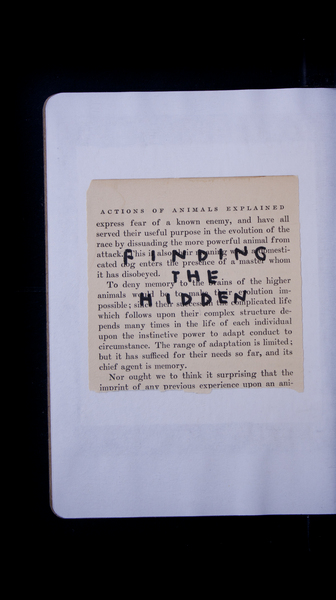 ACTIONS OF ANIMALS EXPLAINED
express fear of a known enemy, and have all
served their useful purpose in the evolution of the
race by dissuading the more powerful animal from
attack. This is also
cated dog enters the presence of a master whom
it has disobeyed.
FINDING
THE
HIDDEN
To deny memory to the brains of the higher
animals would be to make their evolution im-
possible; since their success in the complicated life
which follows upon their complex structure de-
pends many times in the life of each individual
upon the instinctive power to adapt conduct to
circumstance. The range of adaptation is limited;
but it has sufficed for their needs so far, and its
chief agent is memory.
Nor ought we to think it surprising that the
imprint of any previous experience upon an ani-